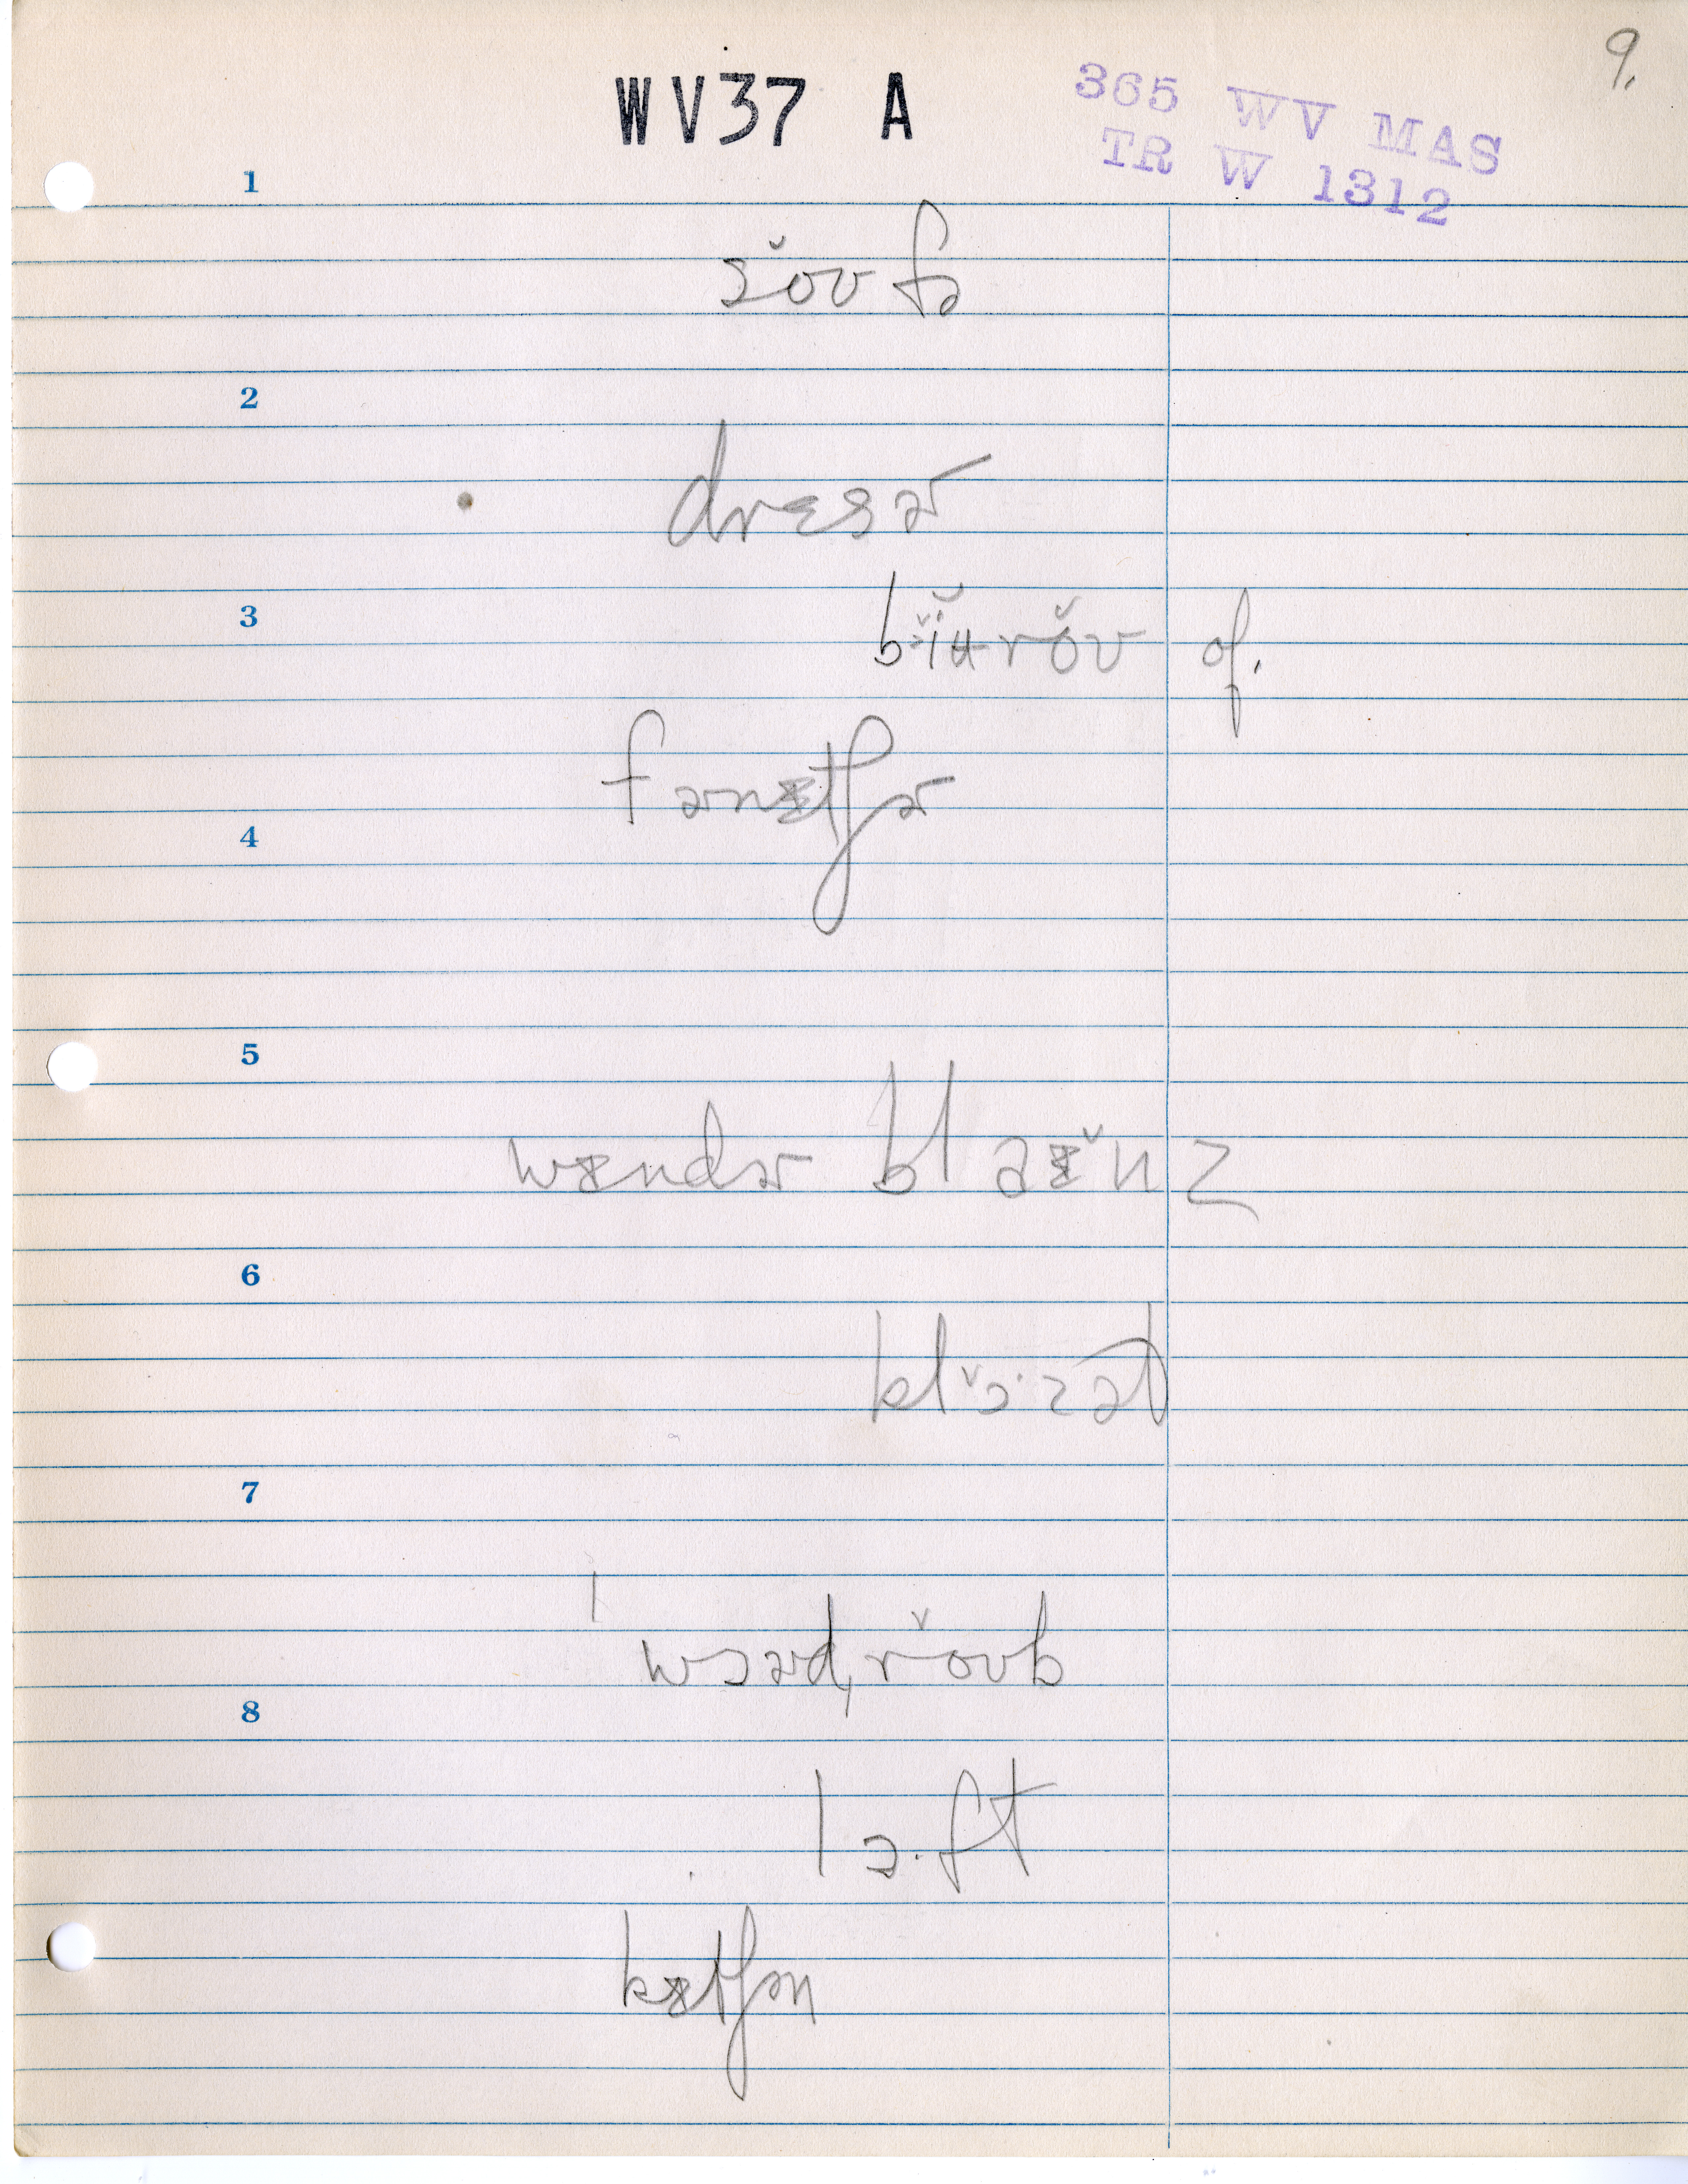 9.
WV37 A
365 WV MAS
TR W 1312
1
sŏʊfə
2
drɛsɚ
3
bɪ̆ʉrŏʊ of.
fɚnɪtʃɚ
4
5
wɪndɚ blaɪ̆nz
6
klɔ̆·zət
7
ˈwɔɚdˌrŏʊb
8
lɔ·ft
kɪtʃən